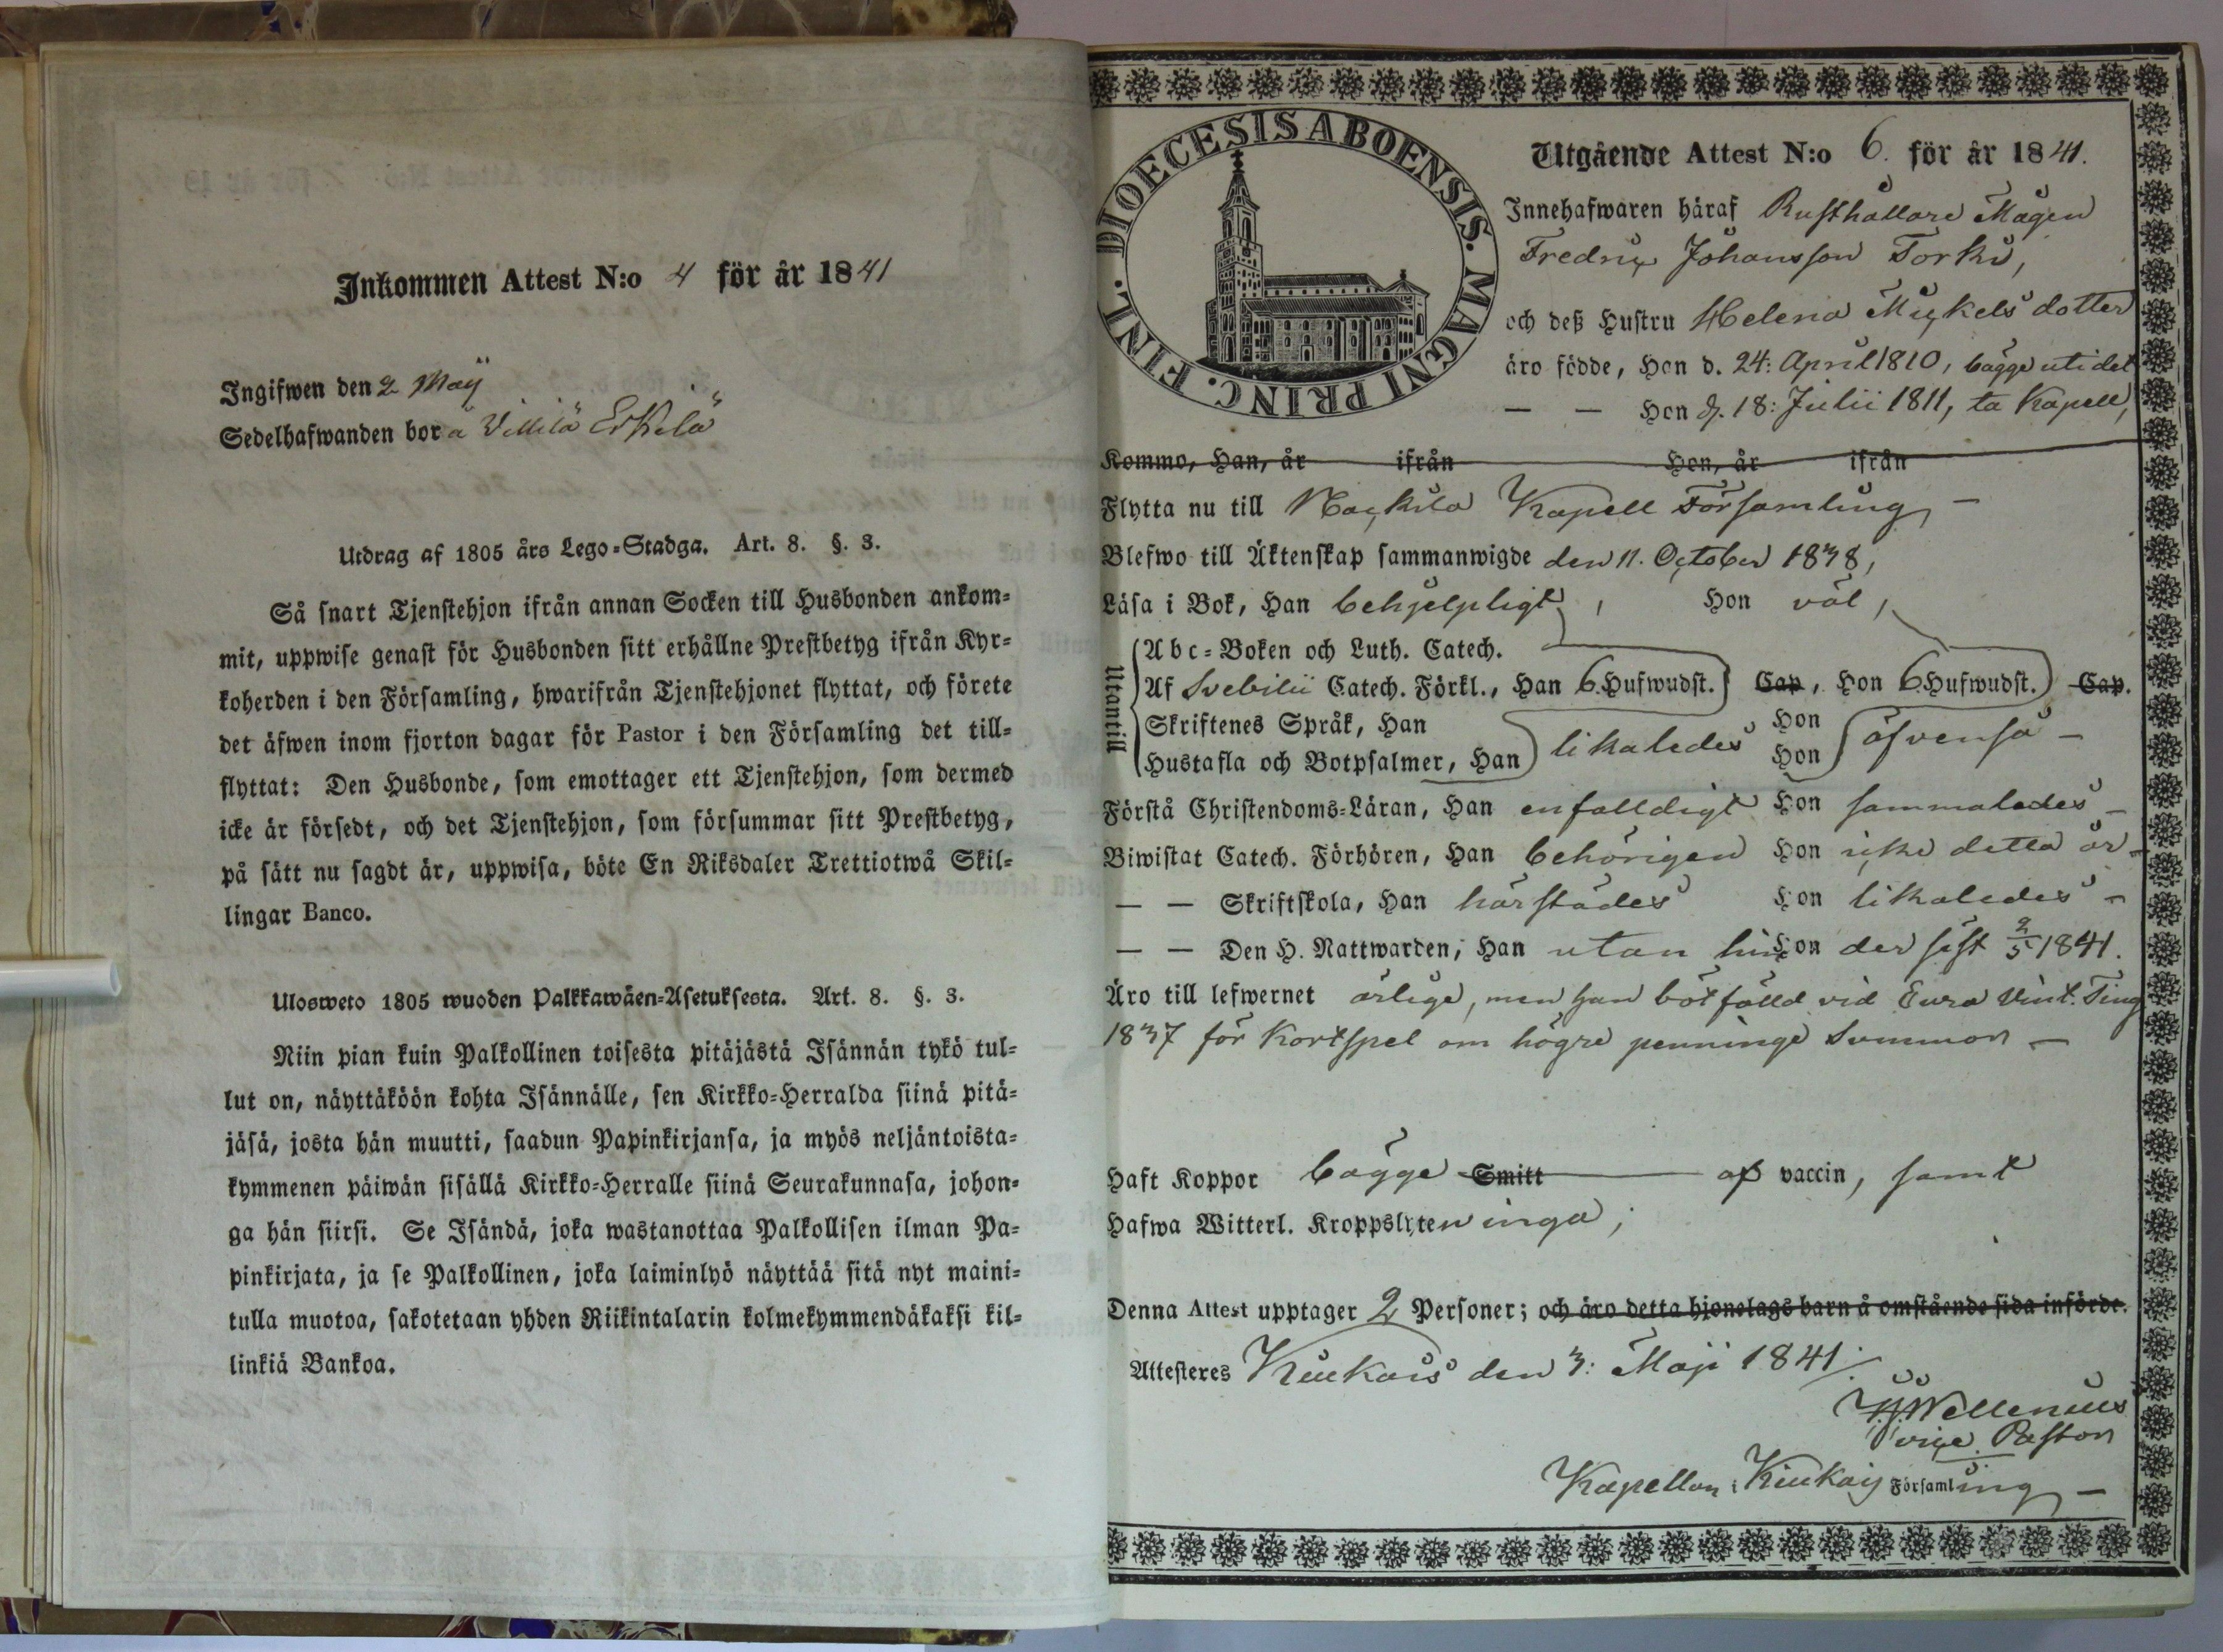 Inkommen Attest N:o 4 för år 1841
Ingifwen den 2 Maij
Sedelhafwanden bor å Villilä Erkilä
Utdrag af 1805 års Lego-Stadga. Art. 8. §. 3.
Så snart Tjenstehjon ifrån annan Socken till Husbonden ankom-
mit, uppwise genast för Husbonden sitt erhållne Prestbetyg ifrån Kyr-
koherden i den Församling, hwarifrån Tjenstehjonet flyttat, och förete
det äfwen inom fjorton dagar för Pastor i den Församling det till-
flyttat: Den Husbonde, som emottager ett Tjenstehjon, som dermed
icke är försedt, och det Tjenstehjon, som försummar sitt Prestbetyg,
på sätt nu sagdt är, uppwisa, böte En Riksdaler Trettiotwå Skil-
lingar Banco.
Ulosweto 1805 wuoden Palkkawäen-Asetuksesta. Art. 8. §. 3.
Niin pian kuin Palkollinen toisesta pitäjästä Isännän tykö tul-
lut on, näyttäköön kohta Isännälle, sen Kirkko-Herralda siinä pitä-
jäsä, josta hän muutti, saadun Papinkirjansa, ja myös neljäntoista-
kymmenen päiwän sisällä Kirkko-Herralle siinä Seurakunnasa, johon-
ga hän siirsi. Se Isändä, joka wastanottaa Palkollisen ilman Pa-
pinkirjata, ja se Palkollinen, joka laiminlyö näyttää sitä nyt maini-
tulla muotoa, sakotetaan yhden Riikintalarin kolmekymmendäkaksi kil-
linkiä Bankoa.
DIOECESIS ABOENSIS. MAGNI PRINC. FINL.
Utgående Attest N:o 6. för år 1841.
Innehafwaren häraf Rusthållare Mågen
Fredric Johansson Torki,
och deß Hustru Helena Mickels dotter
äro födde, Han d. 24: April 1810, bägge uti det
— — Hon d. 18: Julii 1811, ta Kapell,
Komne, Han, år ifrån Hon, år ifrån
Flytta nu till Kapell Församling —
Blefwo till Äktenskap sammanwigde den 11. October 1838,
Läsa i Bok, Han behjelpligt, Hon väl,
Utantill
Abc-Boken och Luth. Catech.
Af Svebilii Catech. Förkl., Han 6 Hufwudst. Cap, Hon 6 Hufwudst. Cap.
Skriftenes Språk, Han Hon
Hustafla och Botpsalmer, Han likaledes Hon äfvenså —
Förstå Christendoms-Läran, Han enfalldigt Hon sammaledes —
Biwistat Catech. Förhören, Han behörigen Hon icke detta år —
— — Skriftskola, Han härstädes Hon likaledes —
— — Den H. Nattwarden, Han utan hin Hon der sist 2/5 1841.
Äro till lefwernet ärlige, men han bötfälld vid Eura Vint. Ting
1837 för Kortspel om högre penninge Summor —
Haft Koppor bägge Smitt af vaccin, samt
Hafwa Witterl. Kroppslyten inga,
Denna Attest upptager 2 Personer; och äro detta hjonelags barn å omstående sida införde.
Attesteres Kiukais den 3: Maji 1841.
Wellenius
vice Pastor
Kapellan i Kiukais Församling —